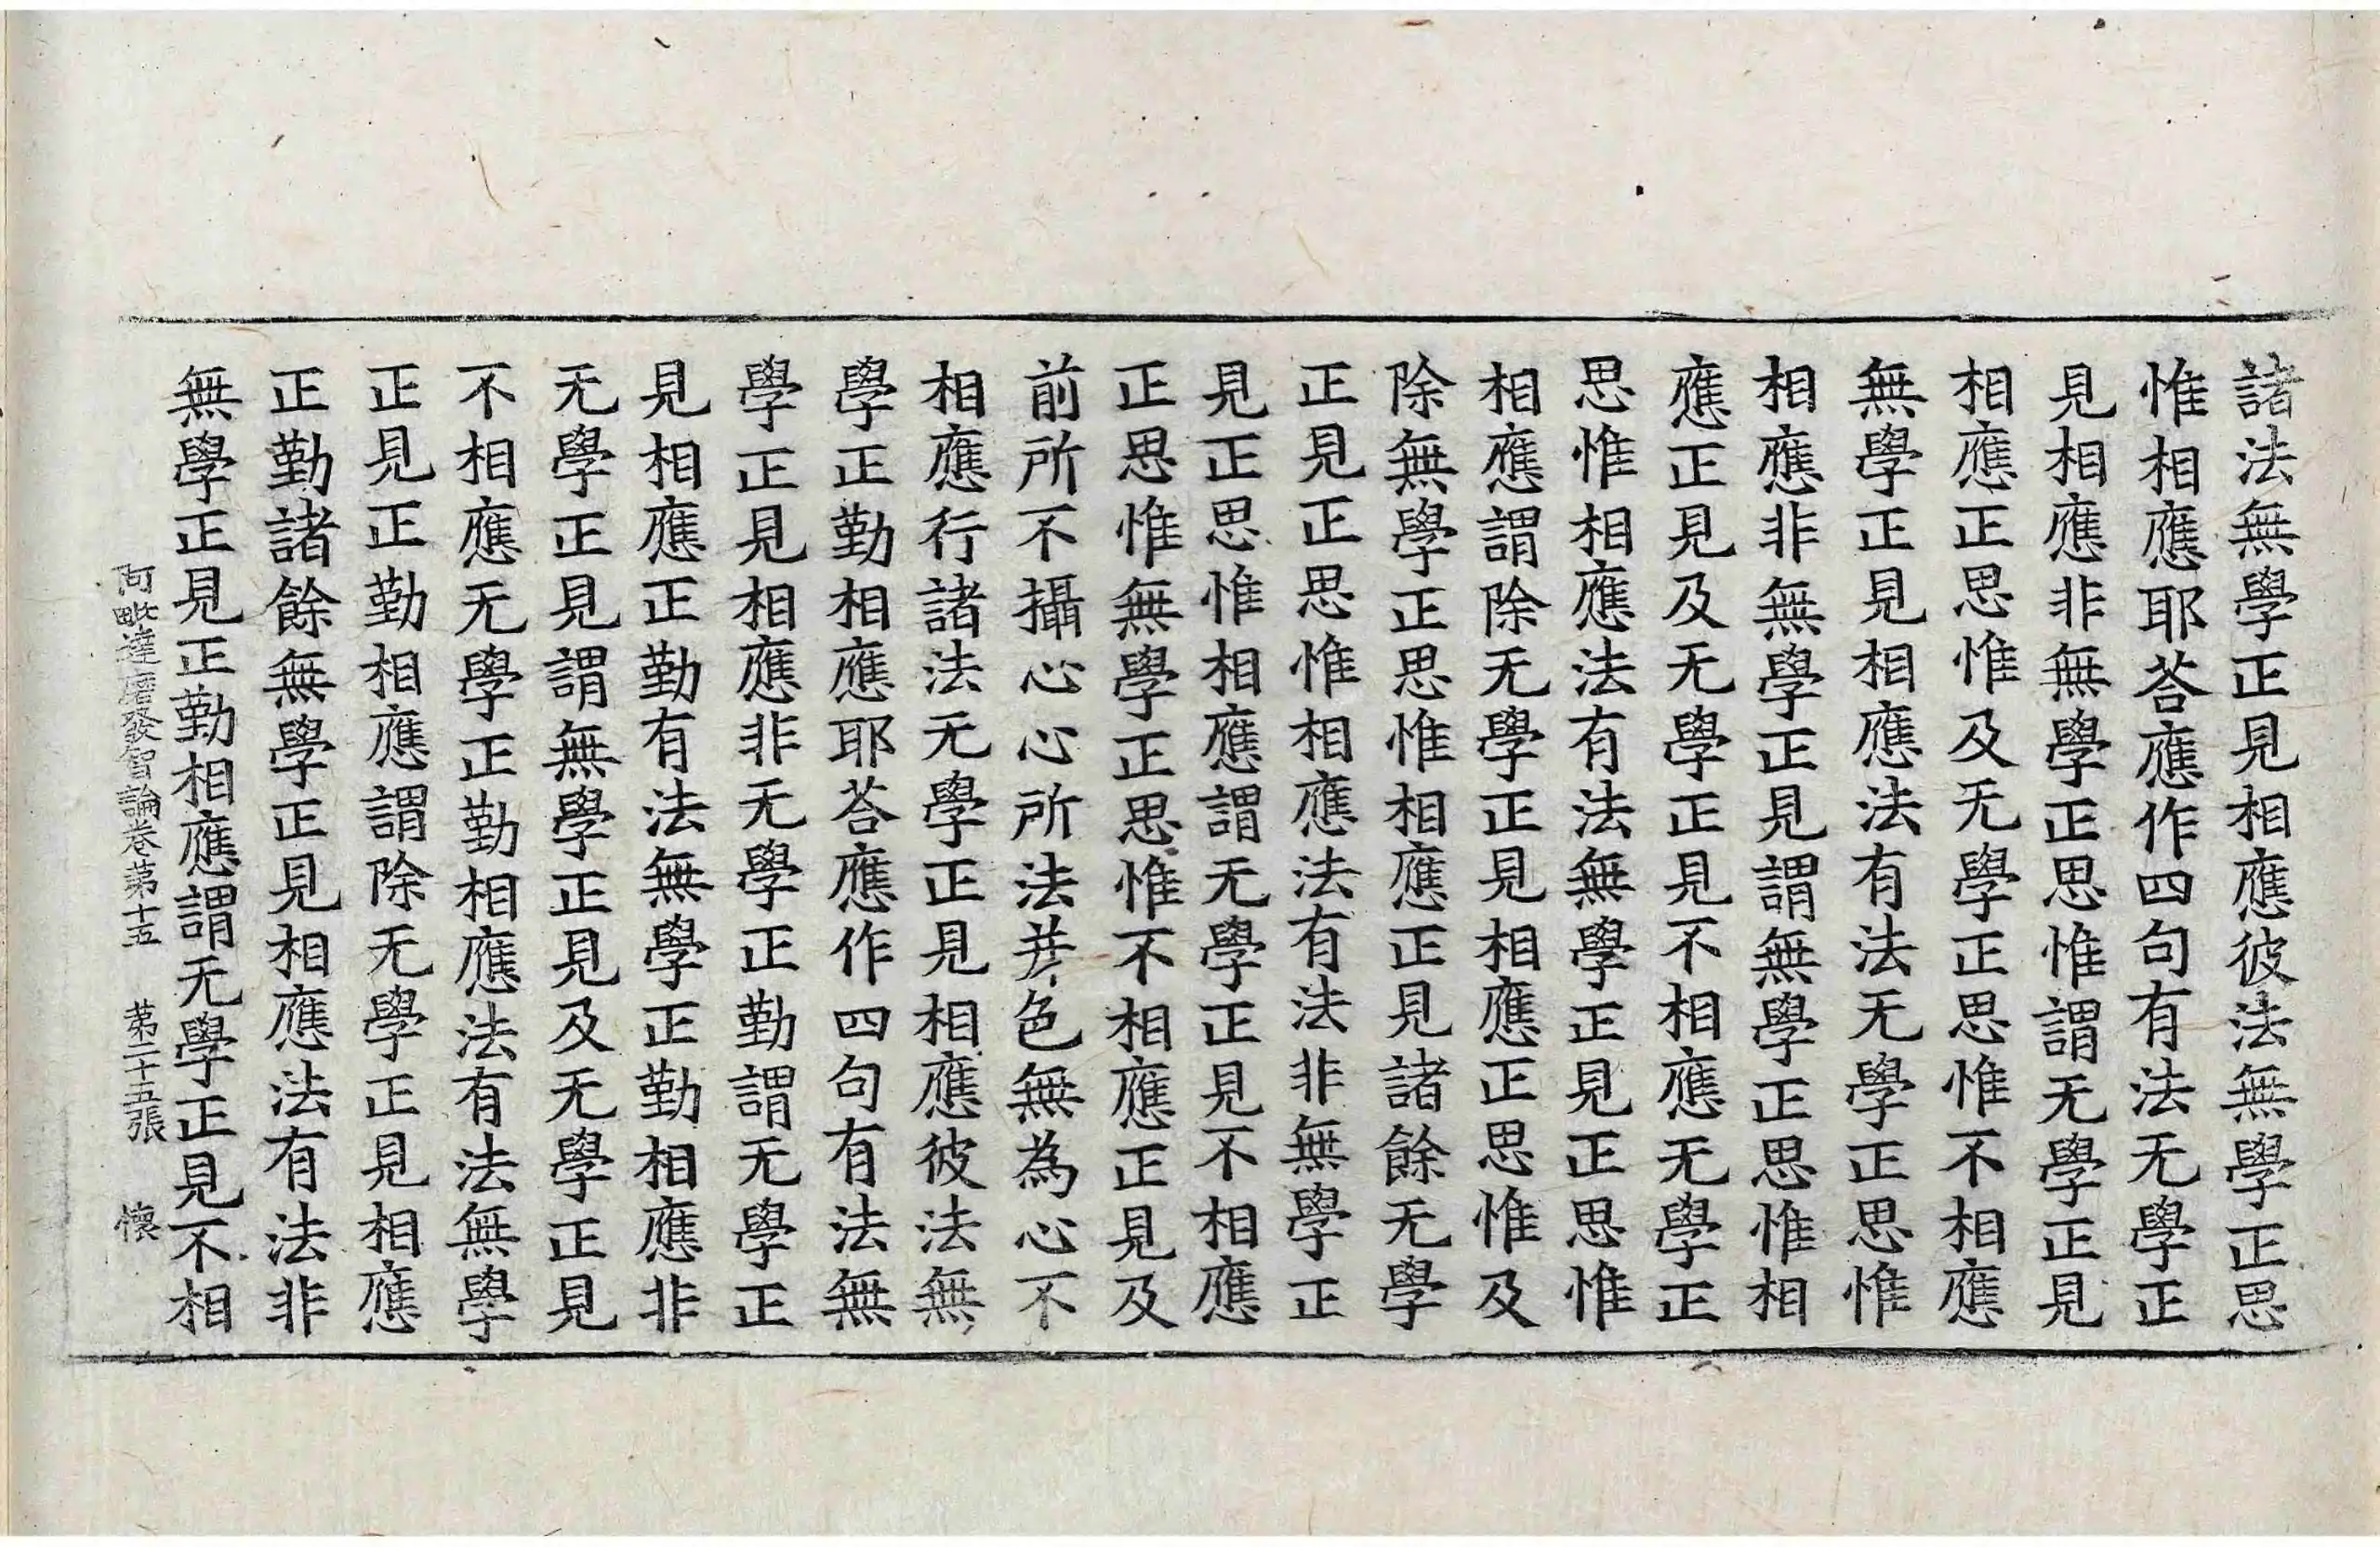 諸法無學正見相應彼法無學正思
惟相應耶荅應作四句有法无學正
見相應非無學正思惟謂无學正見
相應正思惟及无學正思惟不相應
無學正見相應法有法无學正思惟
相應非無學正見謂無學正思惟相
應正見及无學正見不相應无學正
思惟相應法有法無學正見正思惟
相應謂除无學正見相應正思惟及
除無學正思惟相應正見諸餘无學
正見正思惟相應法有法非無學正
見正思惟相應謂无學正見不相應
正思惟無學正思惟不相應正見及
前所不攝心心所法并色無為心不
相應行諸法无學正見相應彼法無
學正勤相應耶荅應作四句有法無
學正見相應非无學正勤謂无學正
見相應正勤有法無學正勤相應非
无學正見謂無學正見及无學正見
不相應无學正勤相應法有法無學
正見正勤相應謂除无學正見相應
正勤諸餘無學正見相應法有法非
無學正見正勤相應謂无學正見不相
阿毗達磨發智論卷苐十五 苐二十五張 懷